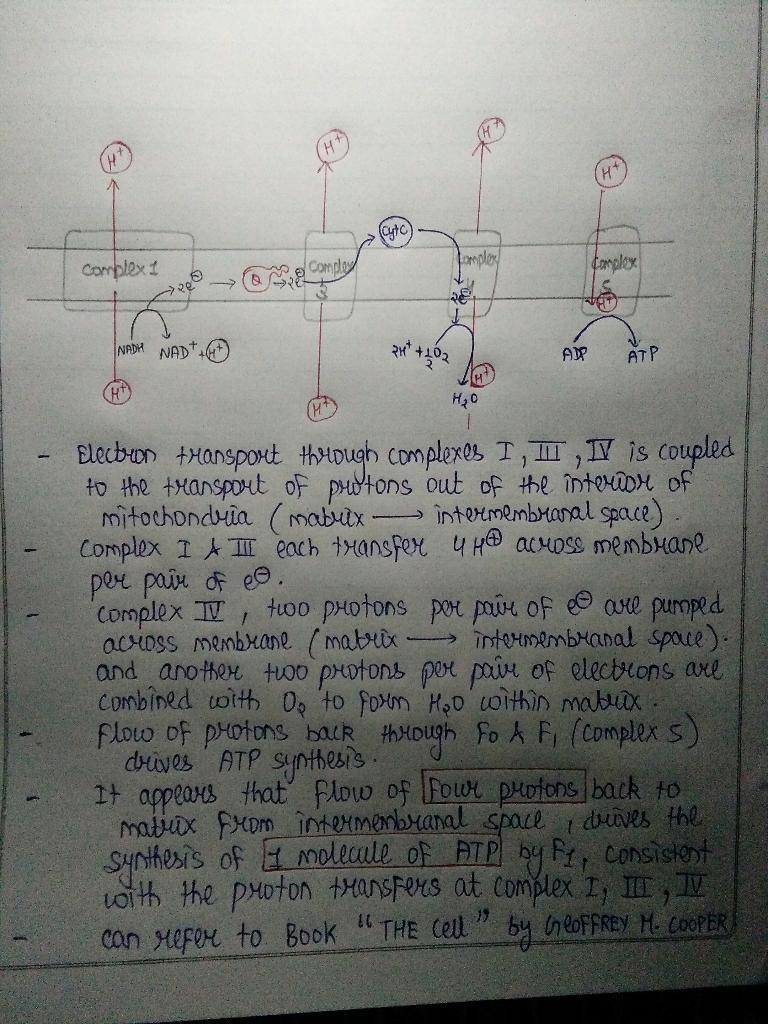 H⁺ H⁺ H⁺ H⁺
Cyt C
Complex 1 2e⊖ → Q → 2e⊖ Complex 3 Complex Complex 5
2e⊖ H⁺
NADH NAD⁺ + H⁺ 2H⁺ + 1/2 O₂ ADP ATP
H⁺ H⁺ H⁺
H₂O
- Electron transport through complexes I, III, IV is coupled
to the transport of protons out of the interior of
mitochondria (matrix ⟶ intermembranal space).
- Complex I & III each transfer 4H⊕ across membrane
per pair of e⊖.
- complex IV, two protons per pair of e⊖ are pumped
across membrane (matrix ⟶ intermembranal space).
and another two protons per pair of electrons are
combined with O₂ to form H₂O within matrix.
- Flow of protons back through Fo & F₁ (complex 5)
drives ATP synthesis.
- It appears that flow of four protons back to
matrix from intermembranal space, drives the
synthesis of 1 molecule of ATP by F1, consistent
with the proton transfers at complex I, III, IV
- can refer to Book "THE Cell" by GEOFFREY M. COOPER